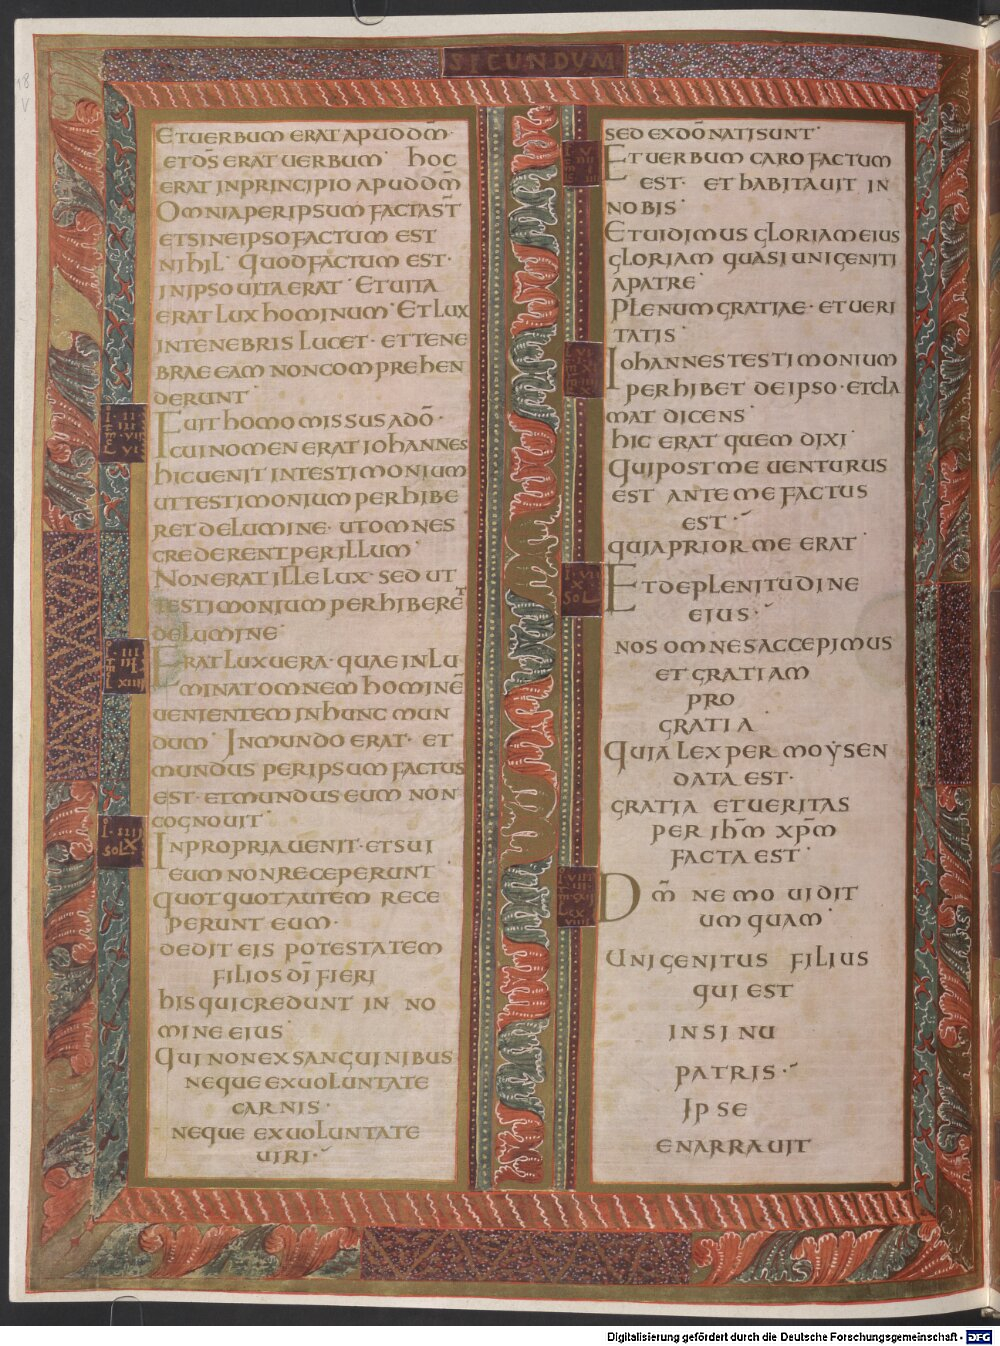 SECUNDUM
98
V
ET UERBUM ERAT APUD DM̄·
ET DS̄ ERAT UERBUM· HOC
ERAT IN PRINCIPIO APUD DM̄
OMNIA PER IPSUM FACTA ST̄
ET SINE IPSO FACTUM EST
NIHIL· QUOD FACTUM EST·
IN IPSO UITA ERAT· ET UITA
ERAT LUX HOMINUM· ET LUX
IN TENEBRIS LUCET· ET TENE
BRAE EAM NON COMPREHEN
DERUNT·
FUIT HOMO MISSUS A DŌ·
CUI NOMEN ERAT IOHANNES
HIC UENIT IN TESTIMONIUM
UT TESTIMONIUM PERHIBE
RET DE LUMINE· UT OMNES
CREDERENT PER ILLUM·
NON ERAT ILLE LUX· SED UT
TESTIMONIUM PERHIBERET
DE LUMINE·
ERAT LUX UERA· QUAE INLU
MINAT OMNEM HOMINĒ
UENIENTEM IN HUNC MUN
DUM· IN MUNDO ERAT· ET
MUNDUS PER IPSUM FACTUS
EST· ET MUNDUS EUM NON
COGNOUIT·
IN PROPRIA UENIT· ET SUI
EUM NON RECEPERUNT
QUOTQUOT AUTEM RECE
PERUNT EUM·
DEDIT EIS POTESTATEM
FILIOS DĪ FIERI
HIS QUI CREDUNT IN NO
MINE EIUS·
QUI NON EX SANGUINIBUS
NEQUE EX UOLUNTATE
CARNIS·
NEQUE EX UOLUNTATE
UIRI·
SED EX DŌ NATI SUNT·
ET UERBUM CARO FACTUM
EST· ET HABITAUIT IN
NOBIS·
ET UIDIMUS GLORIAM EIUS
GLORIAM QUASI UNIGENITI
A PATRE·
PLENUM GRATIAE· ET UERI
TATIS·
IOHANNES TESTIMONIUM
PERHIBET DE IPSO· ET CLA
MAT DICENS·
HIC ERAT QUEM DIXI·
QUI POST ME UENTURUS
EST ANTE ME FACTUS
EST·
QUIA PRIOR ME ERAT·
ET DE PLENITUDINE
EIUS·
NOS OMNES ACCEPIMUS
ET GRATIAM
PRO
GRATIA·
QUIA LEX PER MOYSEN
DATA EST·
GRATIA ET UERITAS
PER IHM̄ XPM̄
FACTA EST·
DM̄ NEMO UIDIT
UMQUAM·
UNIGENITUS FILIUS
QUI EST
IN SINU
PATRIS·
IPSE
ENARRAUIT
Digitalisierung gefördert durch die Deutsche Forschungsgemeinschaft · DFG